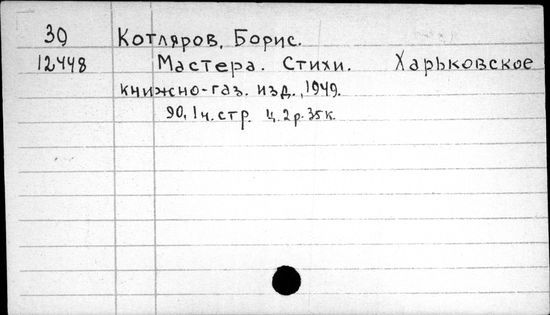 30 Котляров, Борис.
12448 Мастера. Стихи. Харьковское
книжно-газ. изд., 1949.
90, 1 ч. стр. ц. 2 р. 35 к.